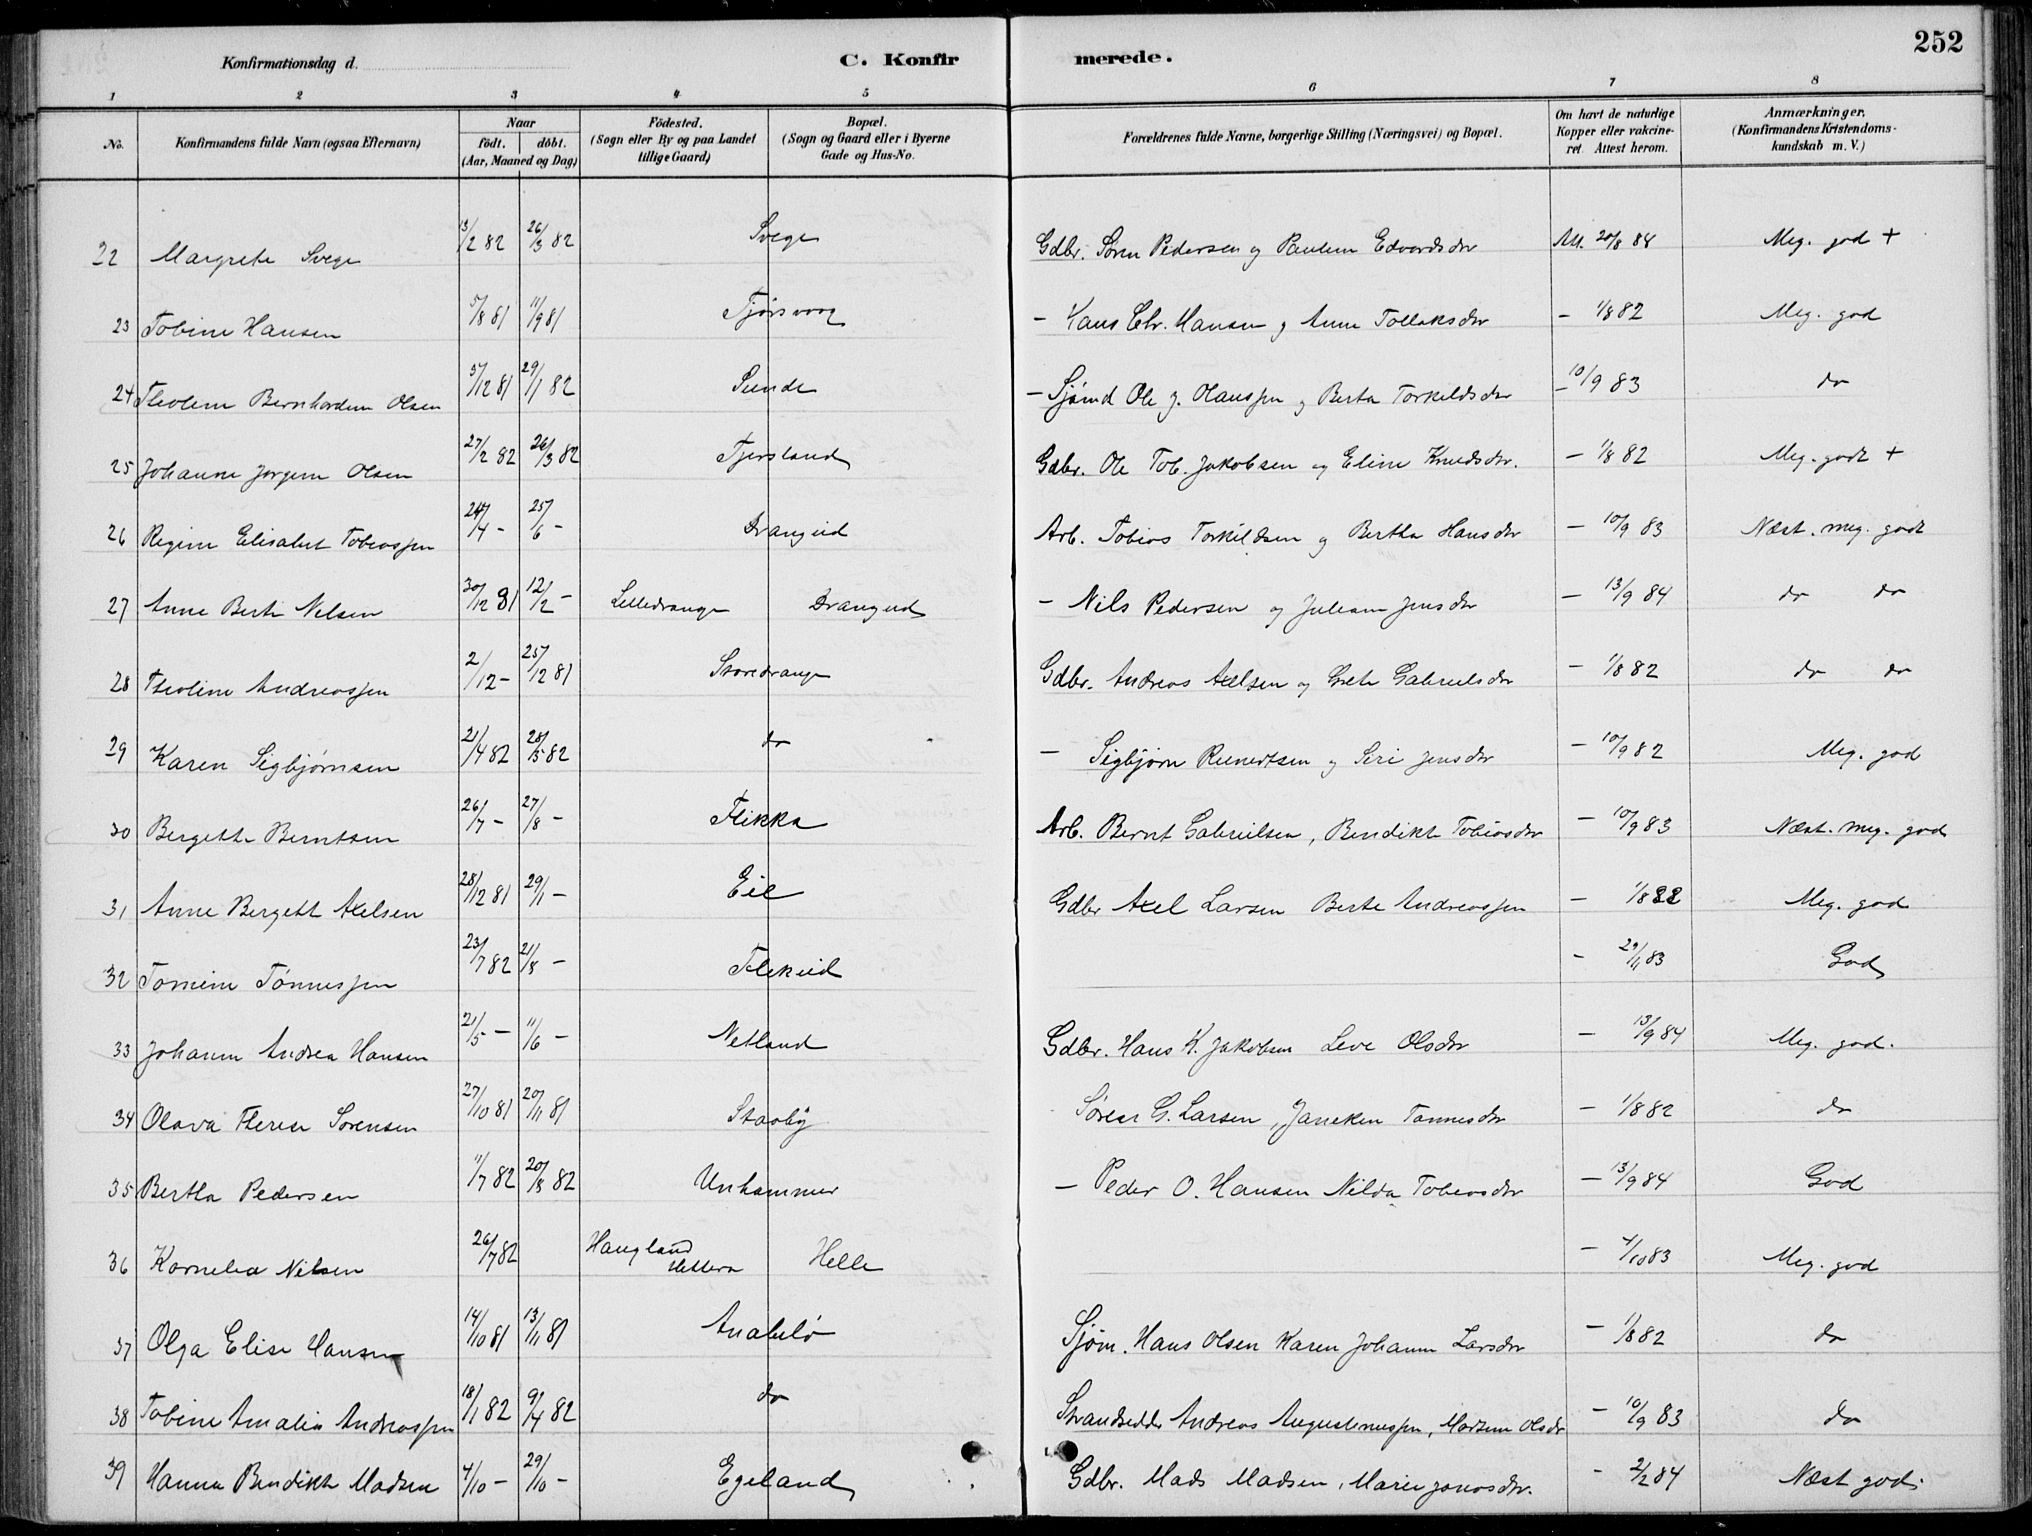 252
Konfirmationsdag d.
C. Konfirmerede.
1 2 3 4 5 6 7 8
No.
Konfirmandens fulde Navn (ogsaa Efternavn)
Naar födt. döbt. (Aar, Maaned og Dag)
Födested. (Sogn eller By og paa Landet tillige Gaard)
Bopæl. (Sogn og Gaard eller i Byerne Gade og Hus-No.
Forældrenes fulde Navne, borgerlige Stilling (Næringsvei) og Bopæl.
Om havt de naturlige Kopper eller vakcineret. Attest herom.
Anmærkninger. (Konfirmandens Kristendomskundskab m. V.)
22 Margrete Svege 13/2 82 26/3 82 Svege Gdbr. Søren Pedersen og Pauline Edvardsdr Att. 20/8 84 Meg. god +
23 Tobine Hansen 5/8 81 11/9 81 Tjørsvaag - Hans Chr. Hansen g Anne Tollaksdr - 1/8 82 Meg. god
24 Theoline Bernhardine Olsen 5/12 81 29/1 82 Sunde - Sjømd Ole g. Olaussen g Berta Torkildsdr - 10/9 83 do
25 Johanne Jørgine Olsen 27/2 82 26/3 82 Tjersland Gdbr. Ole Tob. Jakobsen og Eline Knudsdr. - 1/8 82 Meg. godt +
26 Regine Elisabet Tobiassen 24/4 - 25/6 - Drangeid Arb. Tobias Torkildsen g Bertha Hansdr - 10/9 83 Næst. meg. godt
27 Anne Berte Nilsen 30/12 81 12/2 - Lilledrange Drangeid - Nils Pedersen og Juliane Jensdr - 13/9 84 do do
28 Theoline Andreassen 2/12 - 25/12 81 Storedrange Gdbr. Andreas Axelsen og Grete Gabrielsdr - 1/8 82 do do
29 Karen Sigbjørnsen 21/4 82 28/5 82 do - Sigbjørn Reinertsen g Siri Jensdr - 10/9 82 Meg. god
30 Bergette Berntsen 26/7 - 27/8 - Flikka Arb. Bernt Gabrielsen, Bendikte Tobiasdr - 10/9 83 Næst. meg. god
31 Anne Bergett Axelsen 28/12 81 29/1 - Eie Gdbr Axel Larsen Berte Andreassen - 1/8 82 Meg. god
32 Tomine Tønnessen 23/7 82 21/8 - Flikeid - 29/11 83 God
33 Johanne Andrea Hansen 21/5 - 11/6 - Netland Gdbr. Hans K. Jakobsen Leve Olsdr - 13/9 84 Meg. god.
34 Olava Therese Sørensen 27/10 81 20/11 81 Stavby Søren G. Larsen, Janeken Tønnesdr - 1/8 82 do
35 Bertha Pedersen 11/7 82 20/8 82 Unhammer - Peder O. Hansen Nilda Tobiasdr - 13/9 84 God
36 Kornelia Nilsen 26/7 82 Haugland Hetterø Helle - 4/10 83 Meg. god
37 Olga Elise Hansen 14/10 81 13/11 81 Anabelø Sjøm. Hans Olsen Karen Johanne Larsdr - 1/8 82 do
38 Tobine Amalia Andreassen 18/1 82 9/4 82 do Strandsidder Andreas Augustinussen, Martine Olsdr - 10/9 83 do
39 Hanna Bendikte Madsen 4/10 - 29/10 - Egeland Gdbr. Mads Madsen, Marie Jonasdr. - 2/2 84 Næst god.